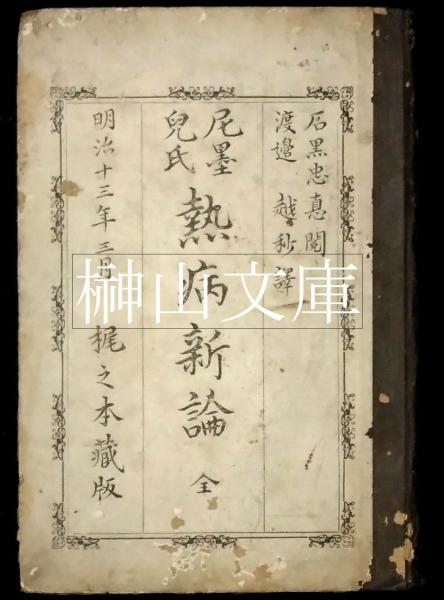 石黒忠悳閲
渡邉越秒譯
尼墨兒氏
熱病新論 全
明治十三年三月 梶之本藏版
榊山文庫